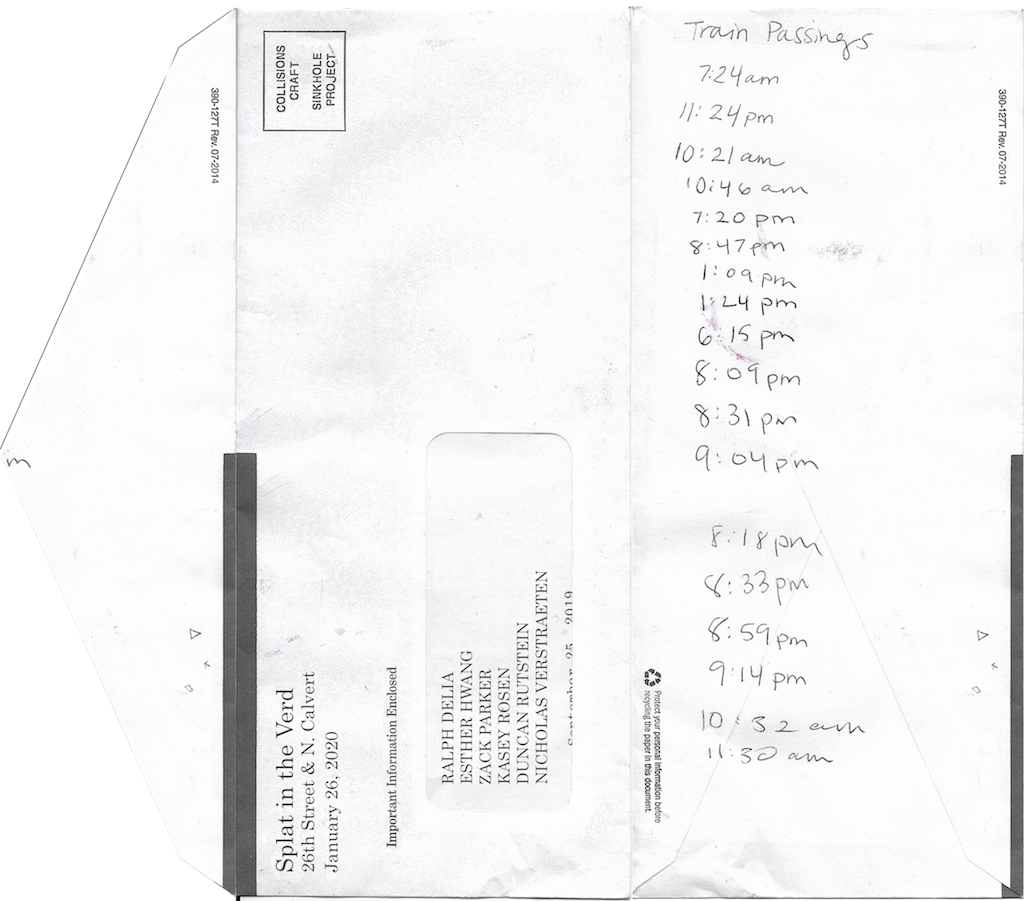 390-127T Rev. 07-2014
m
COLLISIONS
CRAFT
SINKHOLE
PROJECT
Splat in the Verd
26th Street & N. Calvert
January 26, 2020
Important Information Enclosed
RALPH DELIA
ESTHER HWANG
ZACK PARKER
KASEY ROSEN
DUNCAN RUTSTEIN
NICHOLAS VERSTRAETEN
September 25, 2019
Train Passings
7:24am
11:24pm
10:21am
10:46 am
7:20 pm
8:47pm
1:09pm
1:24 pm
6:15 pm
8:09pm
8:31 pm
9:04pm
8:18pm
8:33pm
8:59pm
9:14pm
10:32 am
11:30 am
Protect your personal information before
recycling the paper in this document.
390-127T Rev. 07-2014